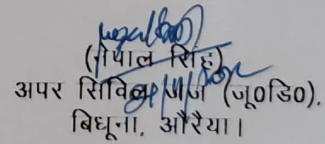 (गोपाल सिंह)
अपर सिविल जज (जू०डि०).
बिधूना, औरैया।